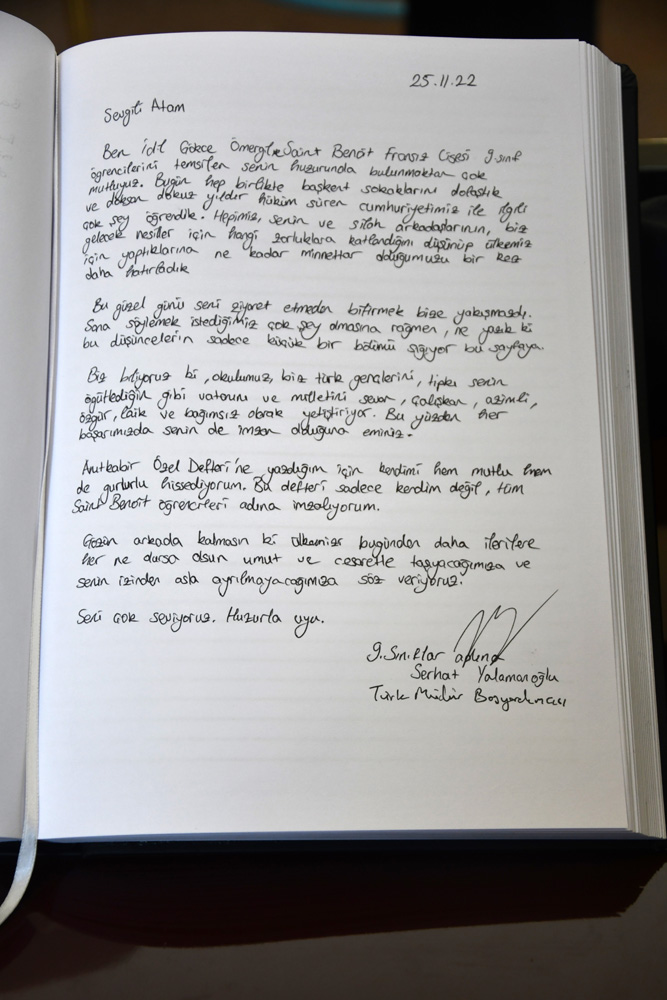 25.11.22
Sevgili Atam
Ben İdil Gökçe Ömeroğlu Saint Benoit Fransız Lisesi 9.sınıf
öğrencilerini temsilen senin huzurunda bulunmaktan çok
mutluyuz. Bugün hep birlikte başkent sokaklarını dolaştık
ve doksan dokuz yıldır hüküm süren cumhuriyetimiz ile ilgili
çok şey öğrendik. Hepimiz, senin ve silah arkadaşlarının, biz
gelecek nesiller için hangi zorluklara katlandığını düşünüp ülkemiz
için yaptıklarına ne kadar minnettar olduğumuzu bir kez
daha hatırladık
Bu güzel günü seni ziyaret etmeden bitirmek bize yakışmazdı.
Sana söylemek istediğimiz çok şey olmasına rağmen, ne yazık ki
bu düşüncelerin sadece küçük bir bölümü sığıyor bu sayfaya.
Biz biliyoruz ki, okulumuz, biz türk gençlerini, tıpkı senin
öğütlediğin gibi vatanını ve milletini seven, çalışkan, azimli,
özgür, laik ve bağımsız olarak yetiştiriyor. Bu yüzden her
başarımızda senin de imzan olduğuna eminiz.
Anıtkabir Özel Defteri'ne yazdığım için kendimi hem mutlu hem
de gururlu hissediyorum. Bu defteri sadece kendim değil, tüm
Saint Benoit öğrencileri adına imzalıyorum.
Gözün arkada kalmasın ki ülkemizi bugünden daha ilerilere
her ne olursa olsun umut ve cesaretle taşıyacağımıza ve
senin izinden asla ayrılmayacağımıza söz veriyoruz.
Seni çok seviyoruz. Huzurla uyu.
9.Sınıflar adına
Serhat Yalamanoğlu
Türk Müdür Başyardımcısı